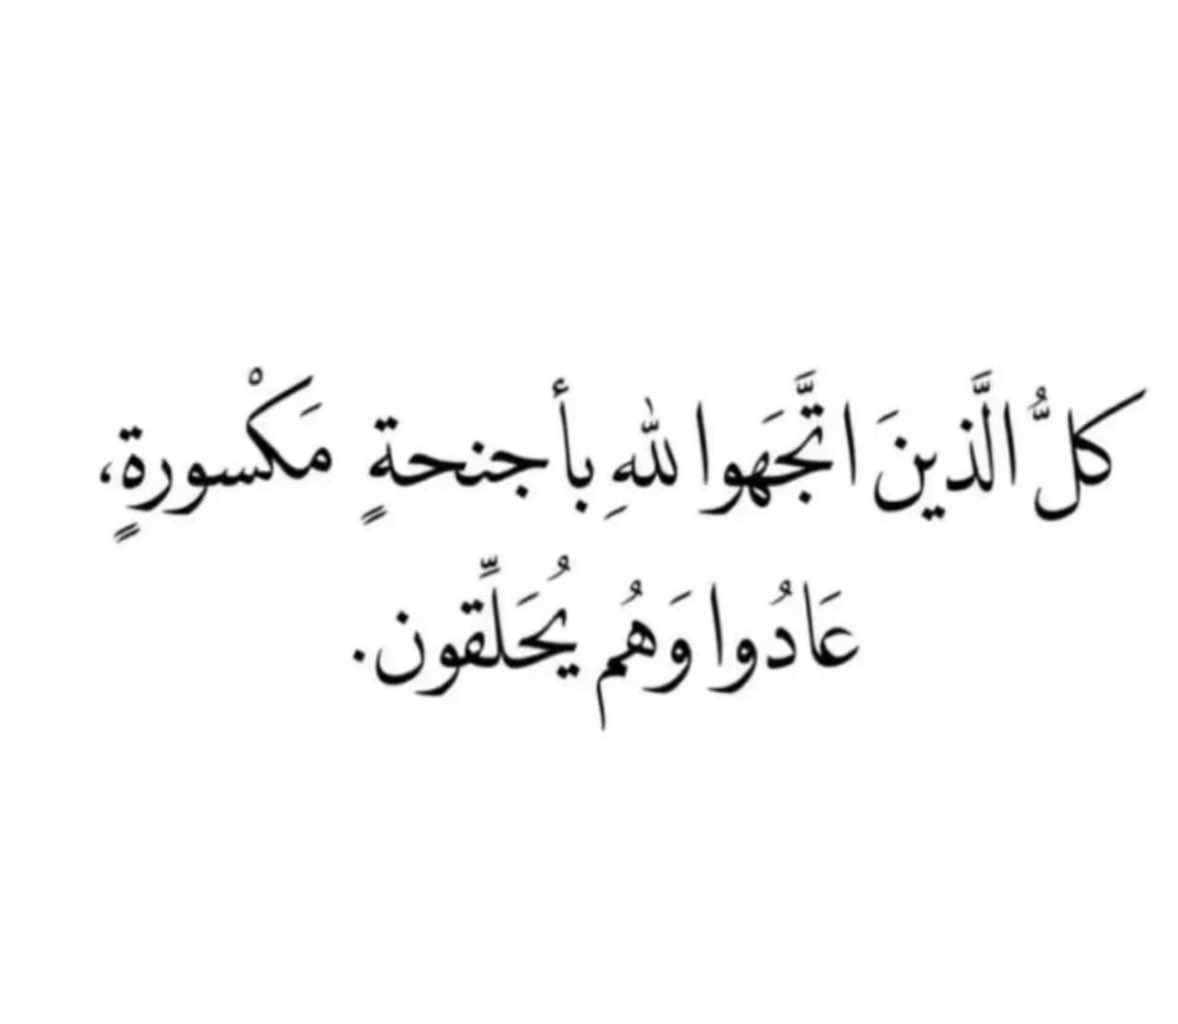 كلُّ الَّذينَ اتَّجَهوا للهِ بأجنحةٍ مَكْسورةٍ،
عَادُوا وَهُم يُحَلِّقون.